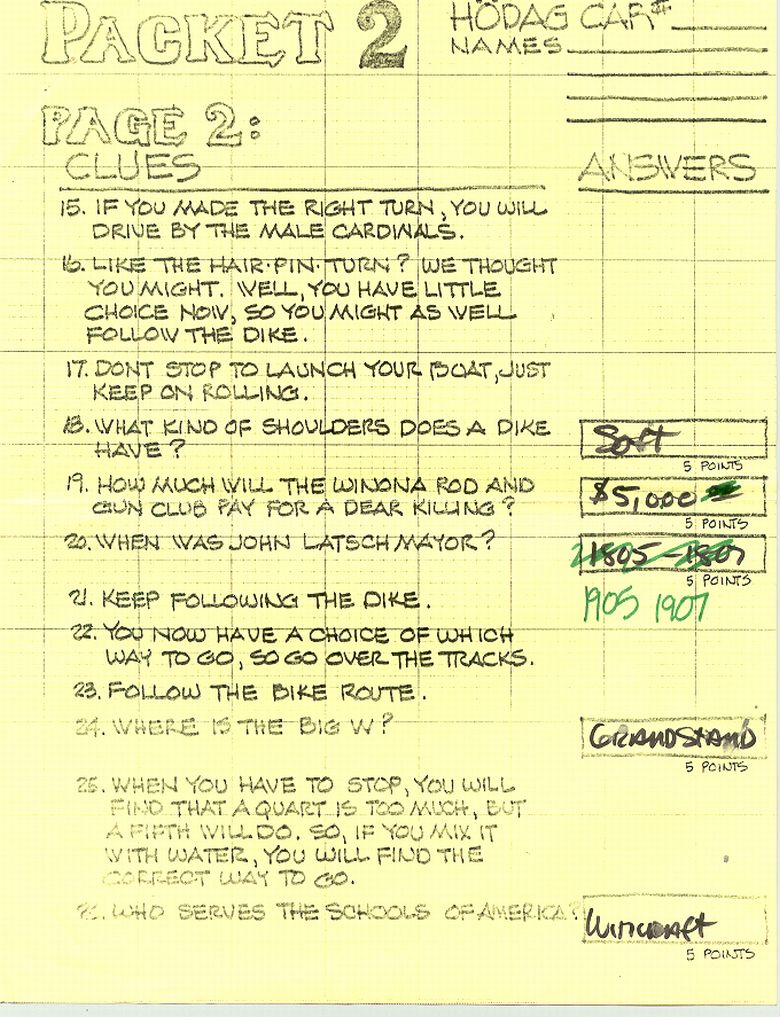 PACKET 2
HÖDAG CAR#
NAMES
PAGE 2:
CLUES
ANSWERS
15. IF YOU MADE THE RIGHT TURN, YOU WILL
DRIVE BY THE MALE CARDINALS.
16. LIKE THE HAIR-PIN-TURN? WE THOUGHT
YOU MIGHT. WELL, YOU HAVE LITTLE
CHOICE NOW, SO YOU MIGHT AS WELL
FOLLOW THE DIKE.
17. DONT STOP TO LAUNCH YOUR BOAT, JUST
KEEP ON ROLLING.
18. WHAT KIND OF SHOULDERS DOES A DIKE
HAVE?
Soft
5 POINTS
19. HOW MUCH WILL THE WINONA ROD AND
GUN CLUB PAY FOR A DEAR KILLING?
$5,000
5 POINTS
20. WHEN WAS JOHN LATSCH MAYOR?
1805-1807
5 POINTS
1905 1907
21. KEEP FOLLOWING THE DIKE.
22. YOU NOW HAVE A CHOICE OF WHICH
WAY TO GO, SO GO OVER THE TRACKS.
23. FOLLOW THE BIKE ROUTE.
24. WHERE IS THE BIG W?
GRANDSTAND
5 POINTS
25. WHEN YOU HAVE TO STOP, YOU WILL
FIND THAT A QUART IS TOO MUCH, BUT
A FIFTH WILL DO. SO, IF YOU MIX IT
WITH WATER, YOU WILL FIND THE
CORRECT WAY TO GO.
26. WHO SERVES THE SCHOOLS OF AMERICA?
Wincraft
5 POINTS